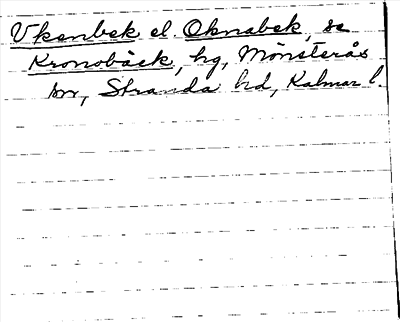 Vkenbek el. Oknabek, se
Kronobäck, hg, Mönsterås
sn, Stranda hd, Kalmar l.